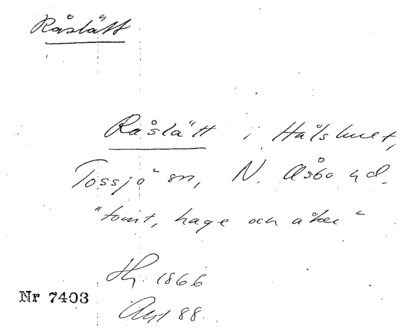 Råslätt
Råslätt i Hålshult,
Tossjö sn, N. Åsbo hd.
"tomt, hage och åker"
1866
Nr 7403
88.